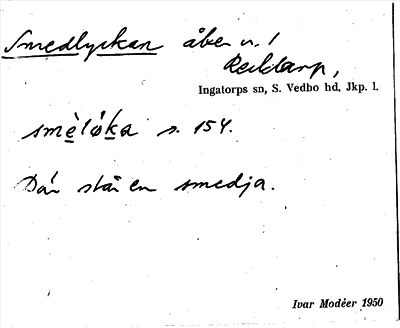 Smedlyckan åker n. 1
Recklarp,
Ingatorps sn, S. Vedbo hd, Jkp. l.
smèlöka s. 154.
Där står en smedja.
Ivar Modéer 1950